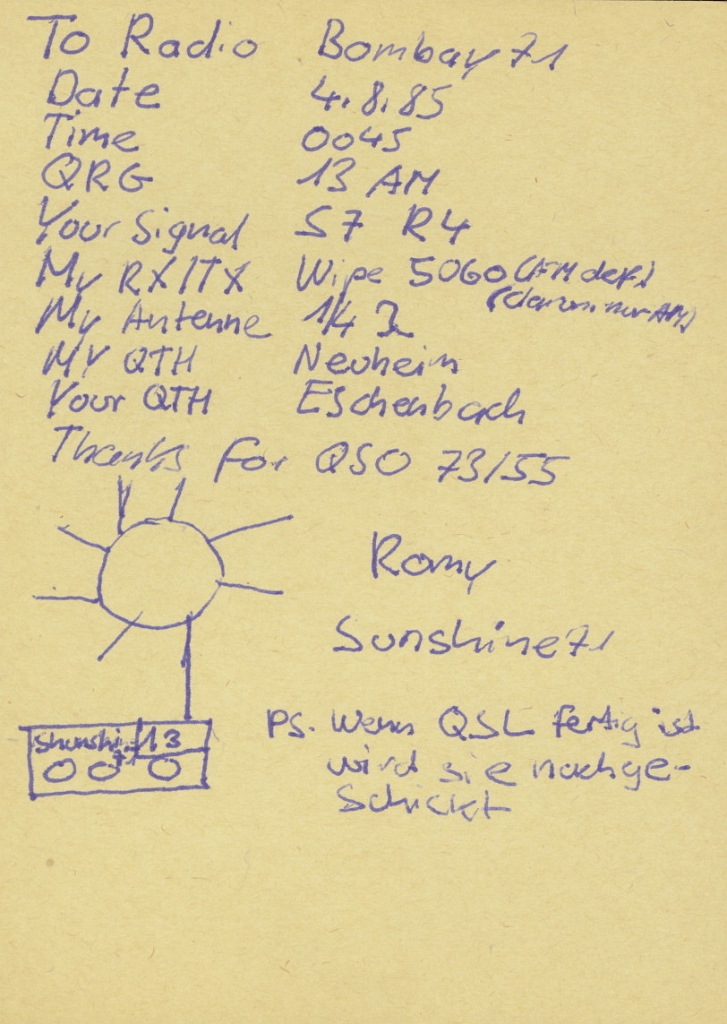 To Radio Bombay 71
Date 4.8.85
Time 0045
QRG 13 AM
Your Signal S7 R4
My RX/TX Wipe 5060 (FM def.)
(darum nur AM)
My Antenne 1/4 λ
MY QTH Neuheim
Your QTH Eschenbach
Thanks for QSO 73/55
Romy
Sunshine 71
Shunshi 13
71
PS. Wenn QSL fertig ist
wird sie nachge-
schickt